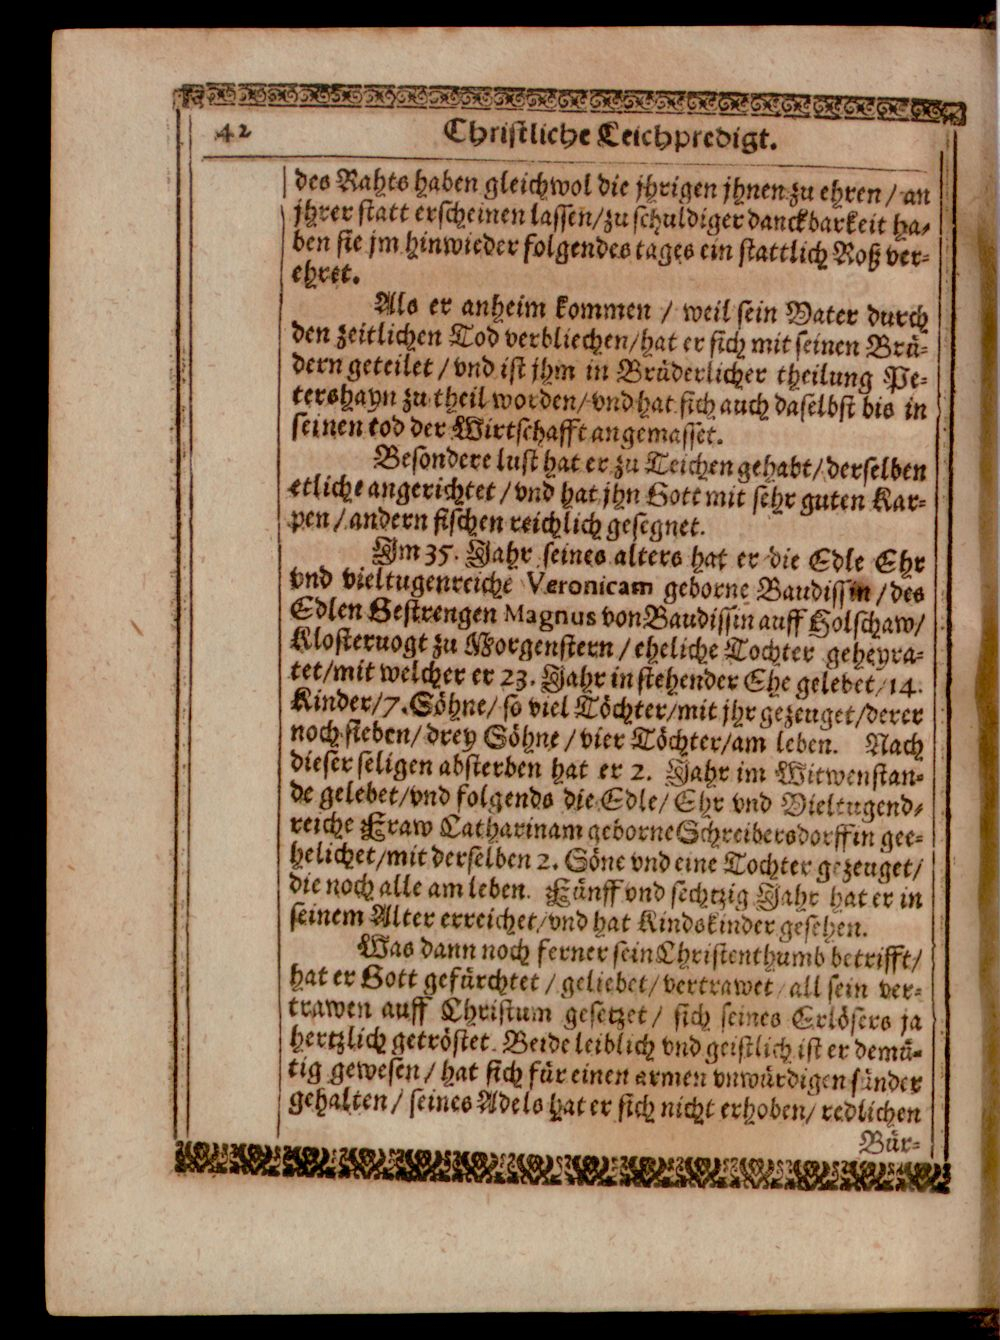 42 Christliche Leichpredigt.
des Rahts haben gleichwol die jhrigen jhnen zu ehren / an
jhrer statt erscheinen lassen/zu schuldiger danckbarkeit ha-
ben sie jm hinwieder folgendes tages ein stattlich Roß ver-
ehret.
Als er anheim kommen / weil sein Vater durch
den zeitlichen Tod verbliechen/hat er sich mit seinen Brü-
dern geteilet / vnd ist jhm in Brüderlicher theilung Pe-
tershayn zu theil worden/vnd hat sich auch daselbst bis in
seinen tod der Wirtschafft angemasset.
Besondere lust hat er zu Teichen gehabt/derselben
etliche angerichtet / vnd hat jhn Gott mit sehr guten Kar-
pen / andern fischen reichlich gesegnet.
Jm 35. Jahr seines alters hat er die Edle Ehr
vnd vieltugenreiche Veronicam geborne Baudissin / des
Edlen Gestrengen Magnus von Baudissin auff Solschaw/
Klostervogt zu Morgenstern / eheliche Tochter geheyra-
tet/mit welcher er 23. Jahr in stehender Ehe gelebet/14.
Kinder/7. Söhne/ so viel Töchter/mit jhr gezeuget/derer
noch sieben/ drey Söhne / vier Töchter/am leben. Nach
dieser seligen absterben hat er 2. Jahr im Witwenstan-
de gelebet/vnd folgends die Edle/ Ehr vnd Vieltugend-
reiche Fraw Catharinam geborne Schreibersdorffin gee-
helichet/mit derselben 2. Söne vnd eine Tochter gezeuget/
die noch alle am leben. Fünff vnd sechtzig Jahr hat er in
seinem Alter erreichet/vnd hat Kindskinder gesehen.
Was dann noch ferner sein Christenthumb betrifft/
hat er Gott gefürchtet / geliebet/ vertrawet/ all sein ver-
trawen auff Christum gesetzet / sich seines Erlösers ja
hertzlich getröstet. Beide leiblich vnd geistlich ist er demü-
tig gewesen / hat sich für einen armen vnwürdigen sünder
gehalten / seines Adels hat er sich nicht erhoben/ redlichen
Bür-